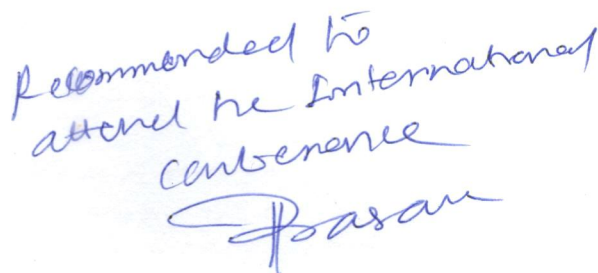 Recommended to
attend the International
conference